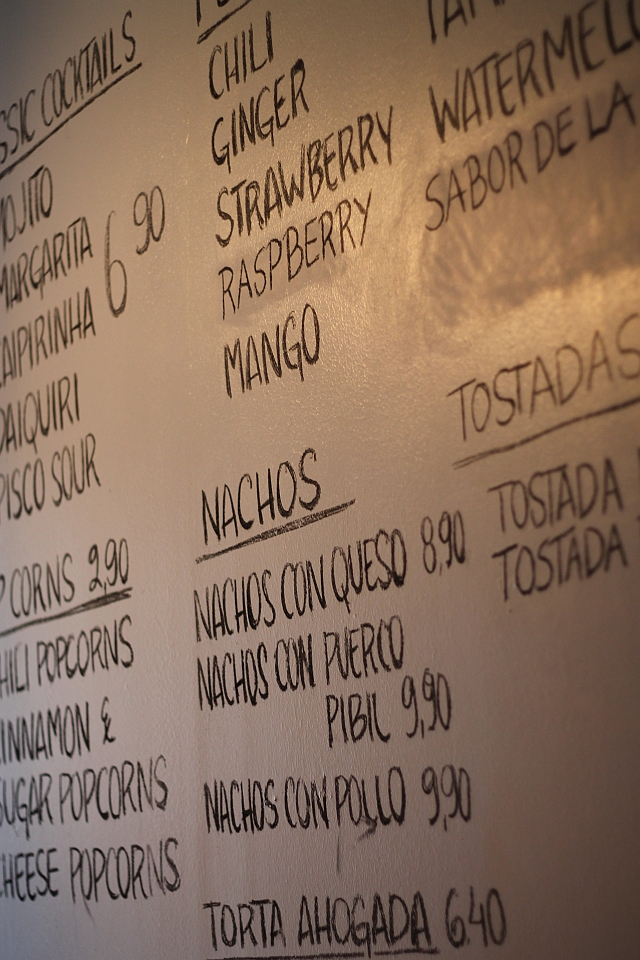 COCKTAILS
MOJITO
MARGARITA 6 90
CAIPIRINHA
DAIQUIRI
PISCO SOUR
CORNS 2,90
CHILI POPCORNS
CINNAMON &
SUGAR POPCORNS
CHEESE POPCORNS
CHILI
GINGER
STRAWBERRY
RASPBERRY
MANGO
NACHOS
NACHOS CON QUESO 8,90
NACHOS CON PUERCO
PIBIL 9,90
NACHOS CON POLLO 9,90
TORTA AHOGADA 6.40
WATERMELO
SABOR DE LA
TOSTADAS
TOSTADA
TOSTADA